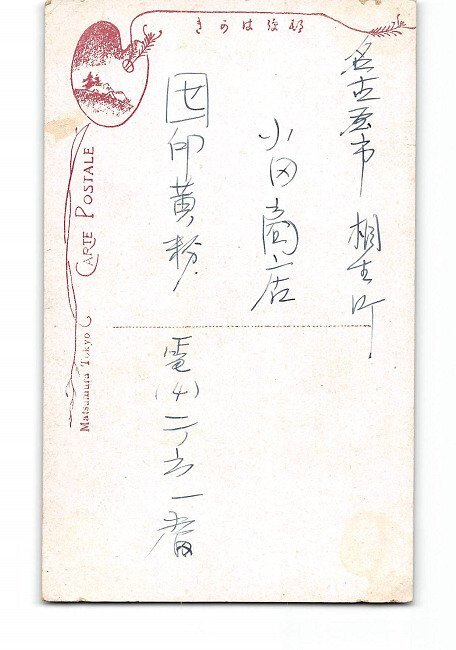 きかは殩郵
名古屋市 相生町
小田商店
印黄粉
電(4)二五一番
CARTE POSTALE
Matsumura Tokyo